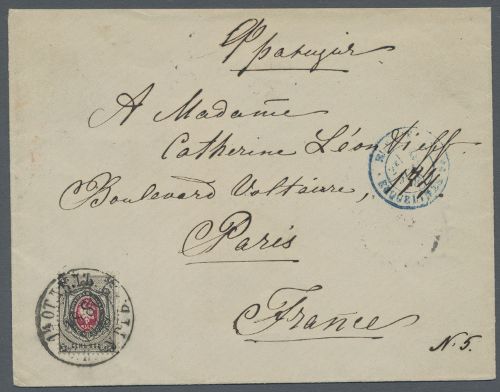 Франция
A Madame
Catherine Léontieff
Boulevard Voltaire,
Paris
France
N. 5.
ERQUELINES